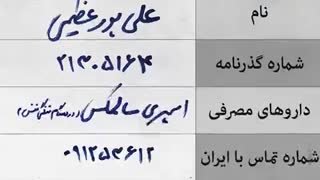 نام علی پورعظیمی
شماره گذرنامه ۲۱۳۰۵۱۶۴
داروهای مصرفی اسپری سالمکس
شماره تماس با ایران ۰۹۱۲۵۳۶۱۲